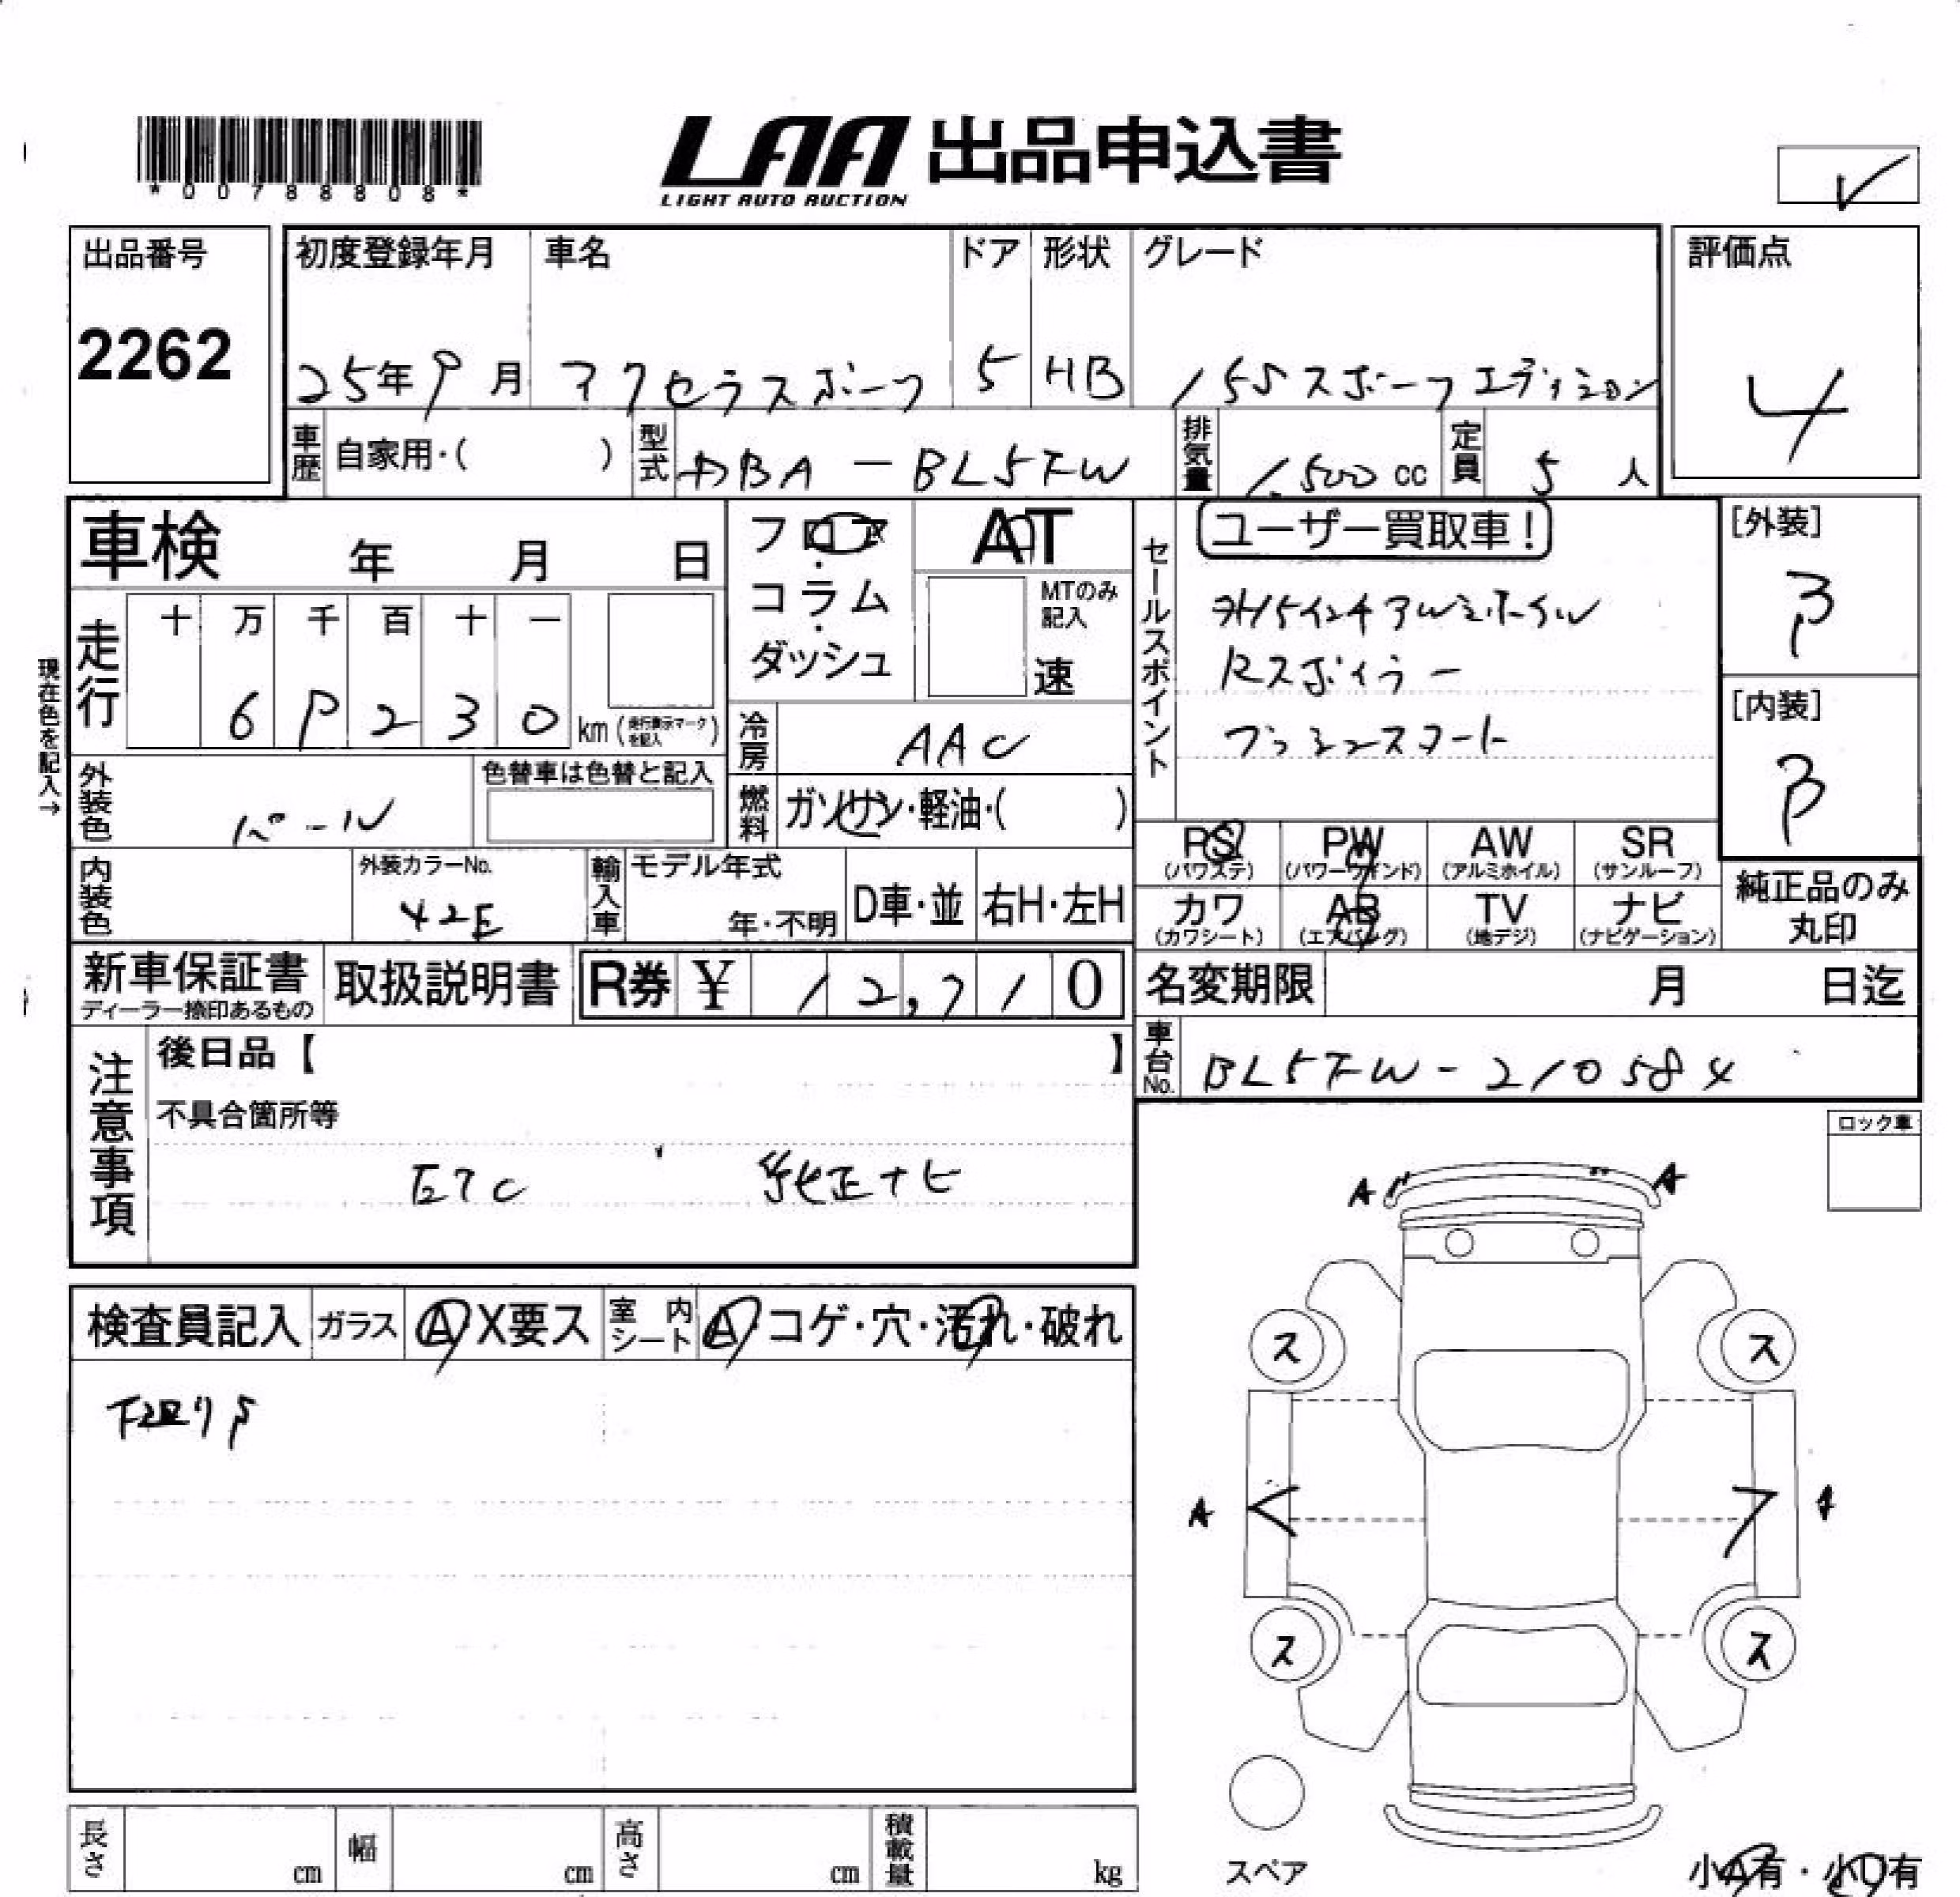 *0078808*
LAA 出品申込書
LIGHT AUTO AUCTION
出品番号
2262
初度登録年月 車名 ドア 形状 グレード
25年9月 アクセラスポーツ 5 HB 15Sスポーツエディション
評価点
4
車歴 自家用・( ) 型式 DBA-BL5FW 排気量 1,500cc 定員 5人
車検 年 月 日
フロア・コラム・ダッシュ
AT
MTのみ記入
速
セールスポイント
ユーザー買取車!
Rスポイラー
プッシュスタート
[外装]
B
[内装]
B
現在色を記入→
走行 十 万 千 百 十 一
69230 km (走行表示マークを記入)
冷房 AAC
外装色 パール 色替車は色替と記入
燃料 ガソリン・軽油・( )
内装色 外装カラーNo. 42E
輸入車 モデル年式 年・不明 D車・並 右H・左H
RS (パワステ) PW (パワーウインド) AW (アルミホイル) SR (サンルーフ)
カワ (カワシート) AB (エアバッグ) TV (地デジ) ナビ (ナビゲーション)
純正品のみ丸印
新車保証書 ディーラー捺印あるもの 取扱説明書 R券 ¥ 12,710
名変期限 月 日迄
車台No. BL5FW-210584
注意事項 後日品【 】
不具合箇所等
ETC 純正ナビ
ロック車
検査員記入 ガラス A X要ス 室内シート A・コゲ・穴・汚れ・破れ
下廻りS
A A
ス ス
A A
ス ス
スペア
長さ cm 幅 cm 高さ cm 積載量 kg
小A有・小U有